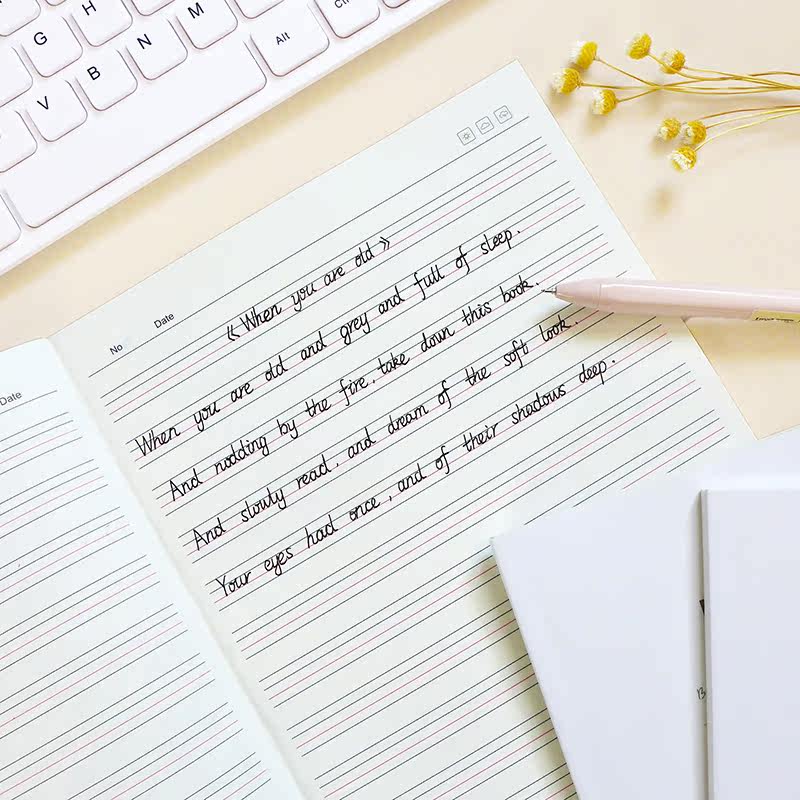 G
H
V
B
N
M
Alt
Ctrl
No
Date
《When you are old》
When you are old and grey and full of sleep.
And nodding by the fire, take down this book.
And slowly read, and dream of the soft look.
Your eyes had once, and of their shadows deep.
Date